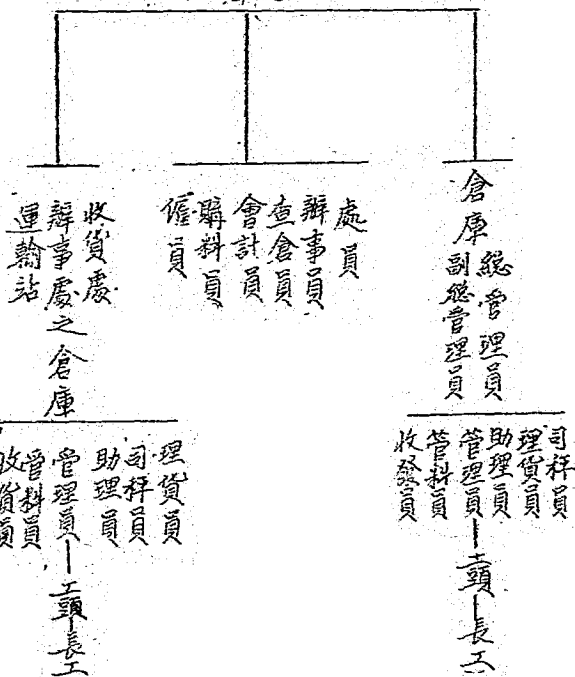 倉庫 總管理員
副總管理員
司秤員
理貨員
助理員
管理員—工頭—長工
管料員
收發員
處員
辦事員
查倉員
會計員
購料員
僱員
收貨處
辦事處之倉庫
運輸站
理貨員
司秤員
助理員
管理員—工頭—長工
管料員
收貨員